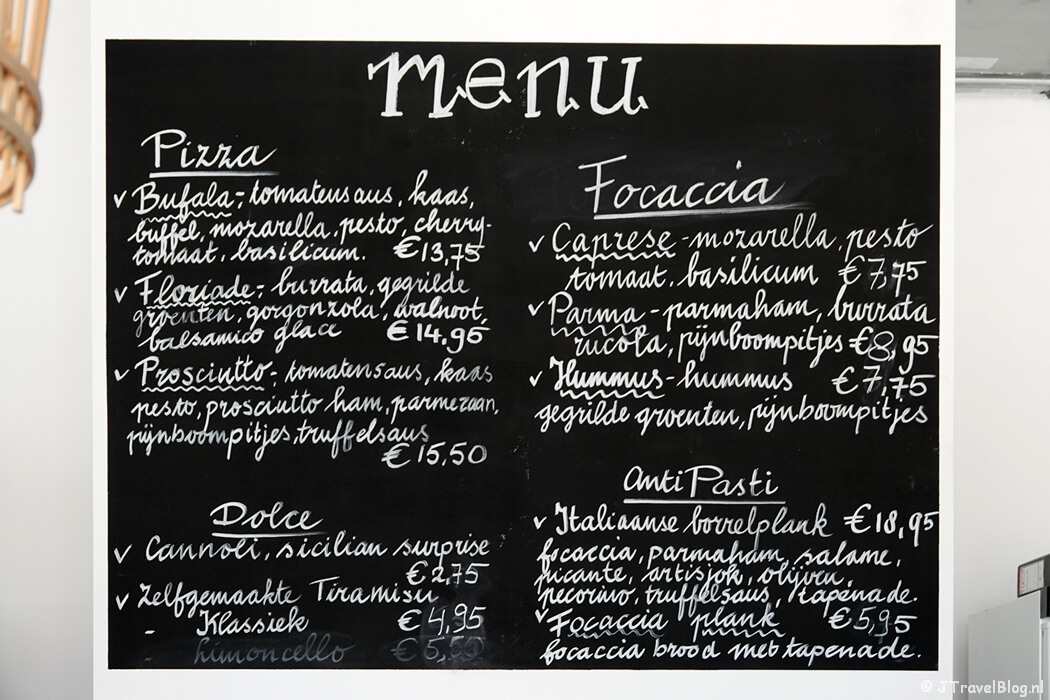 menu
Pizza
✓ Bufala - tomatensaus, kaas,
buffel, mozarella, pesto, cherry-
tomaat, basilicum. €13,75
✓ Floriade - burrata, gegrilde
groenten, gorgonzola, walnoot,
balsamico glace €14,95
✓ Prosciutto - tomatensaus, kaas
pesto, prosciutto ham, parmezaan,
pijnboompitjes, truffelsaus
€15,50
Dolce
✓ Cannoli, sicilian surprise
€2,75
✓ Zelfgemaakte Tiramisu
- Klassiek €4,95
- Limoncello €5,50
Focaccia
✓ Caprese - mozarella, pesto
tomaat, basilicum €7,75
✓ Parma - parmaham, burrata
rucola, pijnboompitjes €8,95
✓ Hummus - hummus €7,75
gegrilde groenten, pijnboompitjes
anti Pasti
✓ Italiaanse borrelplank €18,95
focaccia, parmaham, salame,
picante, artisjok, olijven,
pecorino, truffelsaus, tapenade.
✓ Focaccia plank €5,95
focaccia brood met tapenade.
© JTravelBlog.nl